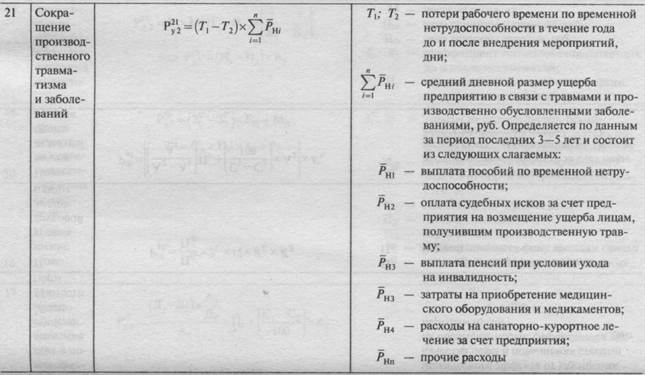 21
Сокра-
щение
производ-
ственного
травма-
тизма
и заболе-
ваний
P²¹у2 = (T₁ – T₂) × ∑ⁿᵢ₌₁ P̄Hi
T₁; T₂ — потери рабочего времени по временной
нетрудоспособности в течение года
до и после внедрения мероприятий,
дни;
∑ⁿᵢ₌₁ P̄Hi — средний дневной размер ущерба
предприятию в связи с травмами и про-
изводственно обусловленными заболе-
ваниями, руб. Определяется по данным
за период последних 3—5 лет и состоит
из следующих слагаемых:
P̄H1 — выплата пособий по временной нетру-
доспособности;
P̄H2 — оплата судебных исков за счет пред-
приятия на возмещение ущерба лицам,
получившим производственную трав-
му;
P̄H3 — выплата пенсий при условии ухода
на инвалидность;
P̄H3 — затраты на приобретение медицин-
ского оборудования и медикаментов;
P̄H4 — расходы на санаторно-курортное ле-
чение за счет предприятия;
P̄Hn — прочие расходы